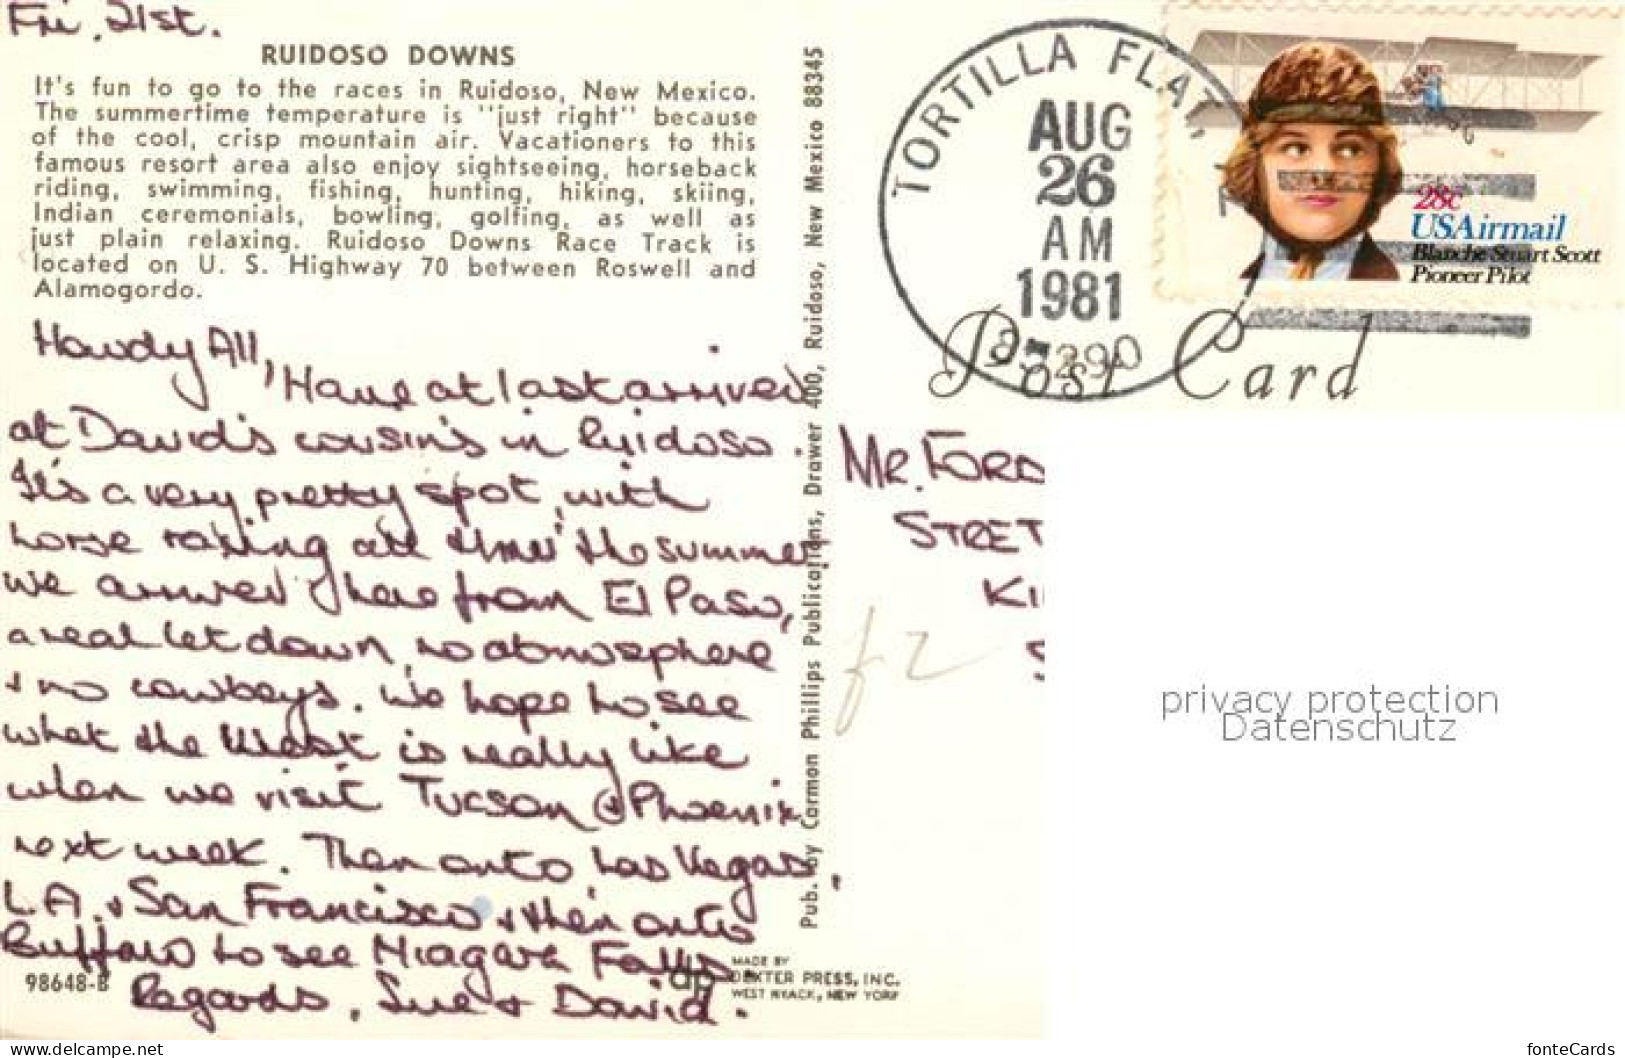 Fri. 21st.
RUIDOSO DOWNS
It's fun to go to the races in Ruidoso, New Mexico.
The summertime temperature is "just right" because
of the cool, crisp mountain air. Vacationers to this
famous resort area also enjoy sightseeing, horseback
riding, swimming, fishing, hunting, hiking, skiing,
Indian ceremonials, bowling, golfing, as well as
just plain relaxing. Ruidoso Downs Race Track is
located on U. S. Highway 70 between Roswell and
Alamogordo.
Howdy All,
Have at last arrived
at David's cousin's in Ruidoso.
It's a very pretty spot, with
horse racing all thru' the summer
we arrived here from El Paso,
a real let down, no atmosphere
& no cowboys. We hope to see
what the West is really like
when we visit Tucson & Phoenix
next week. Then onto Las Vegas,
L.A. & San Francisco & then onto
Buffalo to see Niagara Falls
Regards, Sue & David.
98648-B
Pub. by Carmon Phillips Publications, Drawer 400, Ruidoso, New Mexico 88345
dp
MADE BY
DEXTER PRESS, INC.
WEST NYACK, NEW YORK
TORTILLA FLAT,
AUG
26
AM
1981
85290
28c
USAirmail
Blanche Stuart Scott
Pioneer Pilot
Post Card
MR. FORD
STRET
KI
S
privacy protection
Datenschutz
www.delcampe.net
fonteCards